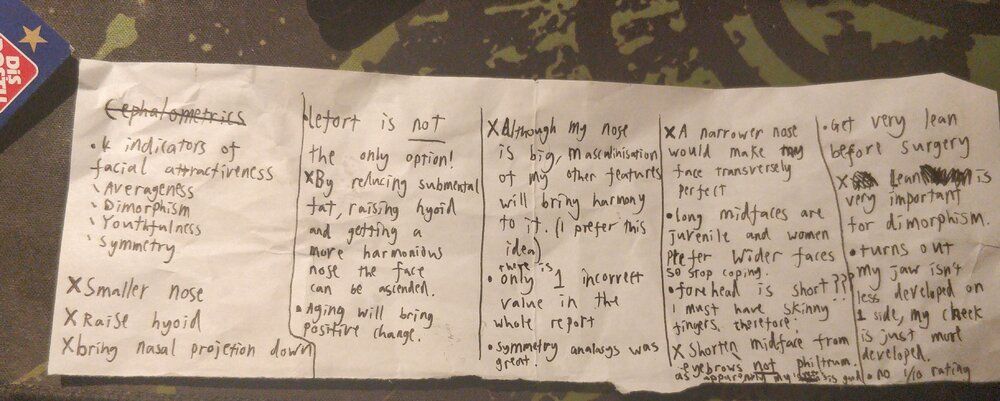 DiS
Cephalometrics
• 4 indicators of
facial attractiveness
\ Averageness
\ Dimorphism
\ Youthfulness
\ Symmetry
X Smaller nose
X Raise hyoid
X bring nasal projection down
• lefort is not
the only option!
X By reducing submental
fat, raising hyoid
and getting a
more harmonious
nose the face
can be ascended.
• Aging will bring
positive change.
X Although my nose
is big, masculinisation
of my other features
will bring harmony
to it. (I prefer this
idea)
there is
• only 1 incorrect
value in the
whole report
• symmetry analasys was
great.
X A narrower nose
would make my
face transversely
perfect
• long midfaces are
juvenile and women
prefer wider faces
so stop coping.
• forehead is short???
I must have skinny
fingers, therefore!
X Shorten midface from
eyebrows not philtrum.
as apparently my is good
• Get very lean
before surgery
X Lean is
very important
for dimorphism.
• turns out
my jaw isn't
less developed on
1 side, my cheek
is just more
developed.
• no 1/10 rating